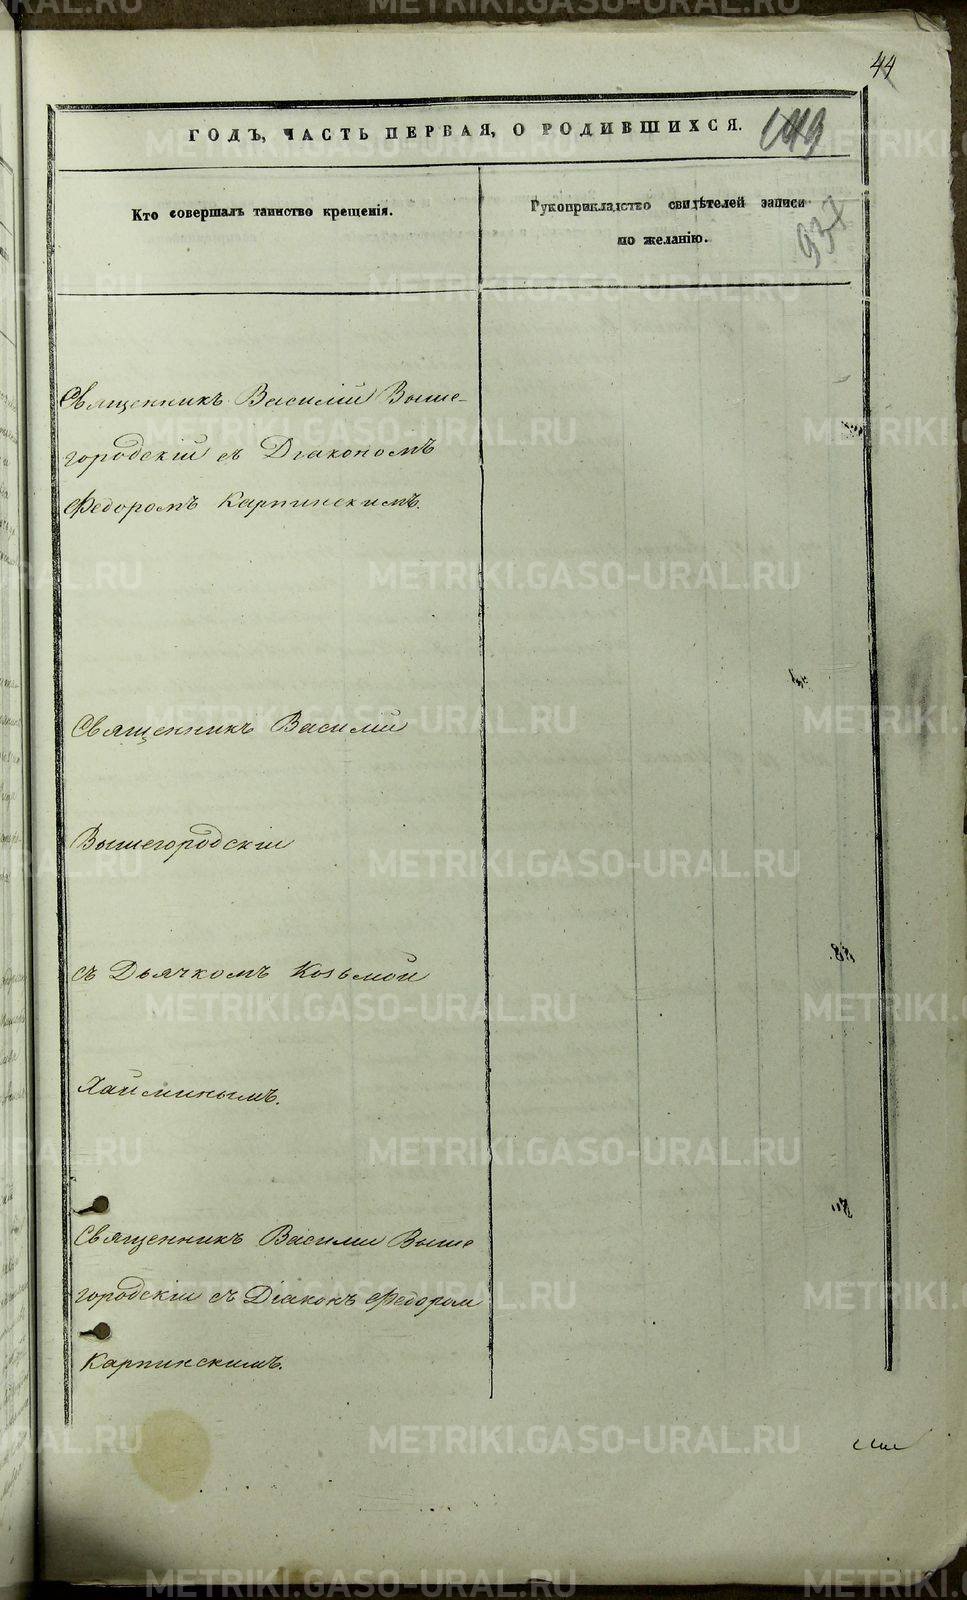 44
ГОДЪ, ЧАСТЬ ПЕРВАЯ, О РОДИВШИХСЯ.
Кто совершалъ таинство крещенія.
Рукоприкладство свидѣтелей записи
по желанію.
Священникъ Василій Выше-
городскій съ Діакономъ
Федоромъ Карпинскимъ.
Священникъ Василій
Вышегородскій
съ Дьячкомъ Козьмой
Хайминымъ.
Священникъ Василій Выше
городскій съ Діаконъ Федором
Карпинскимъ.
METRIKI.GASO-URAL.RU